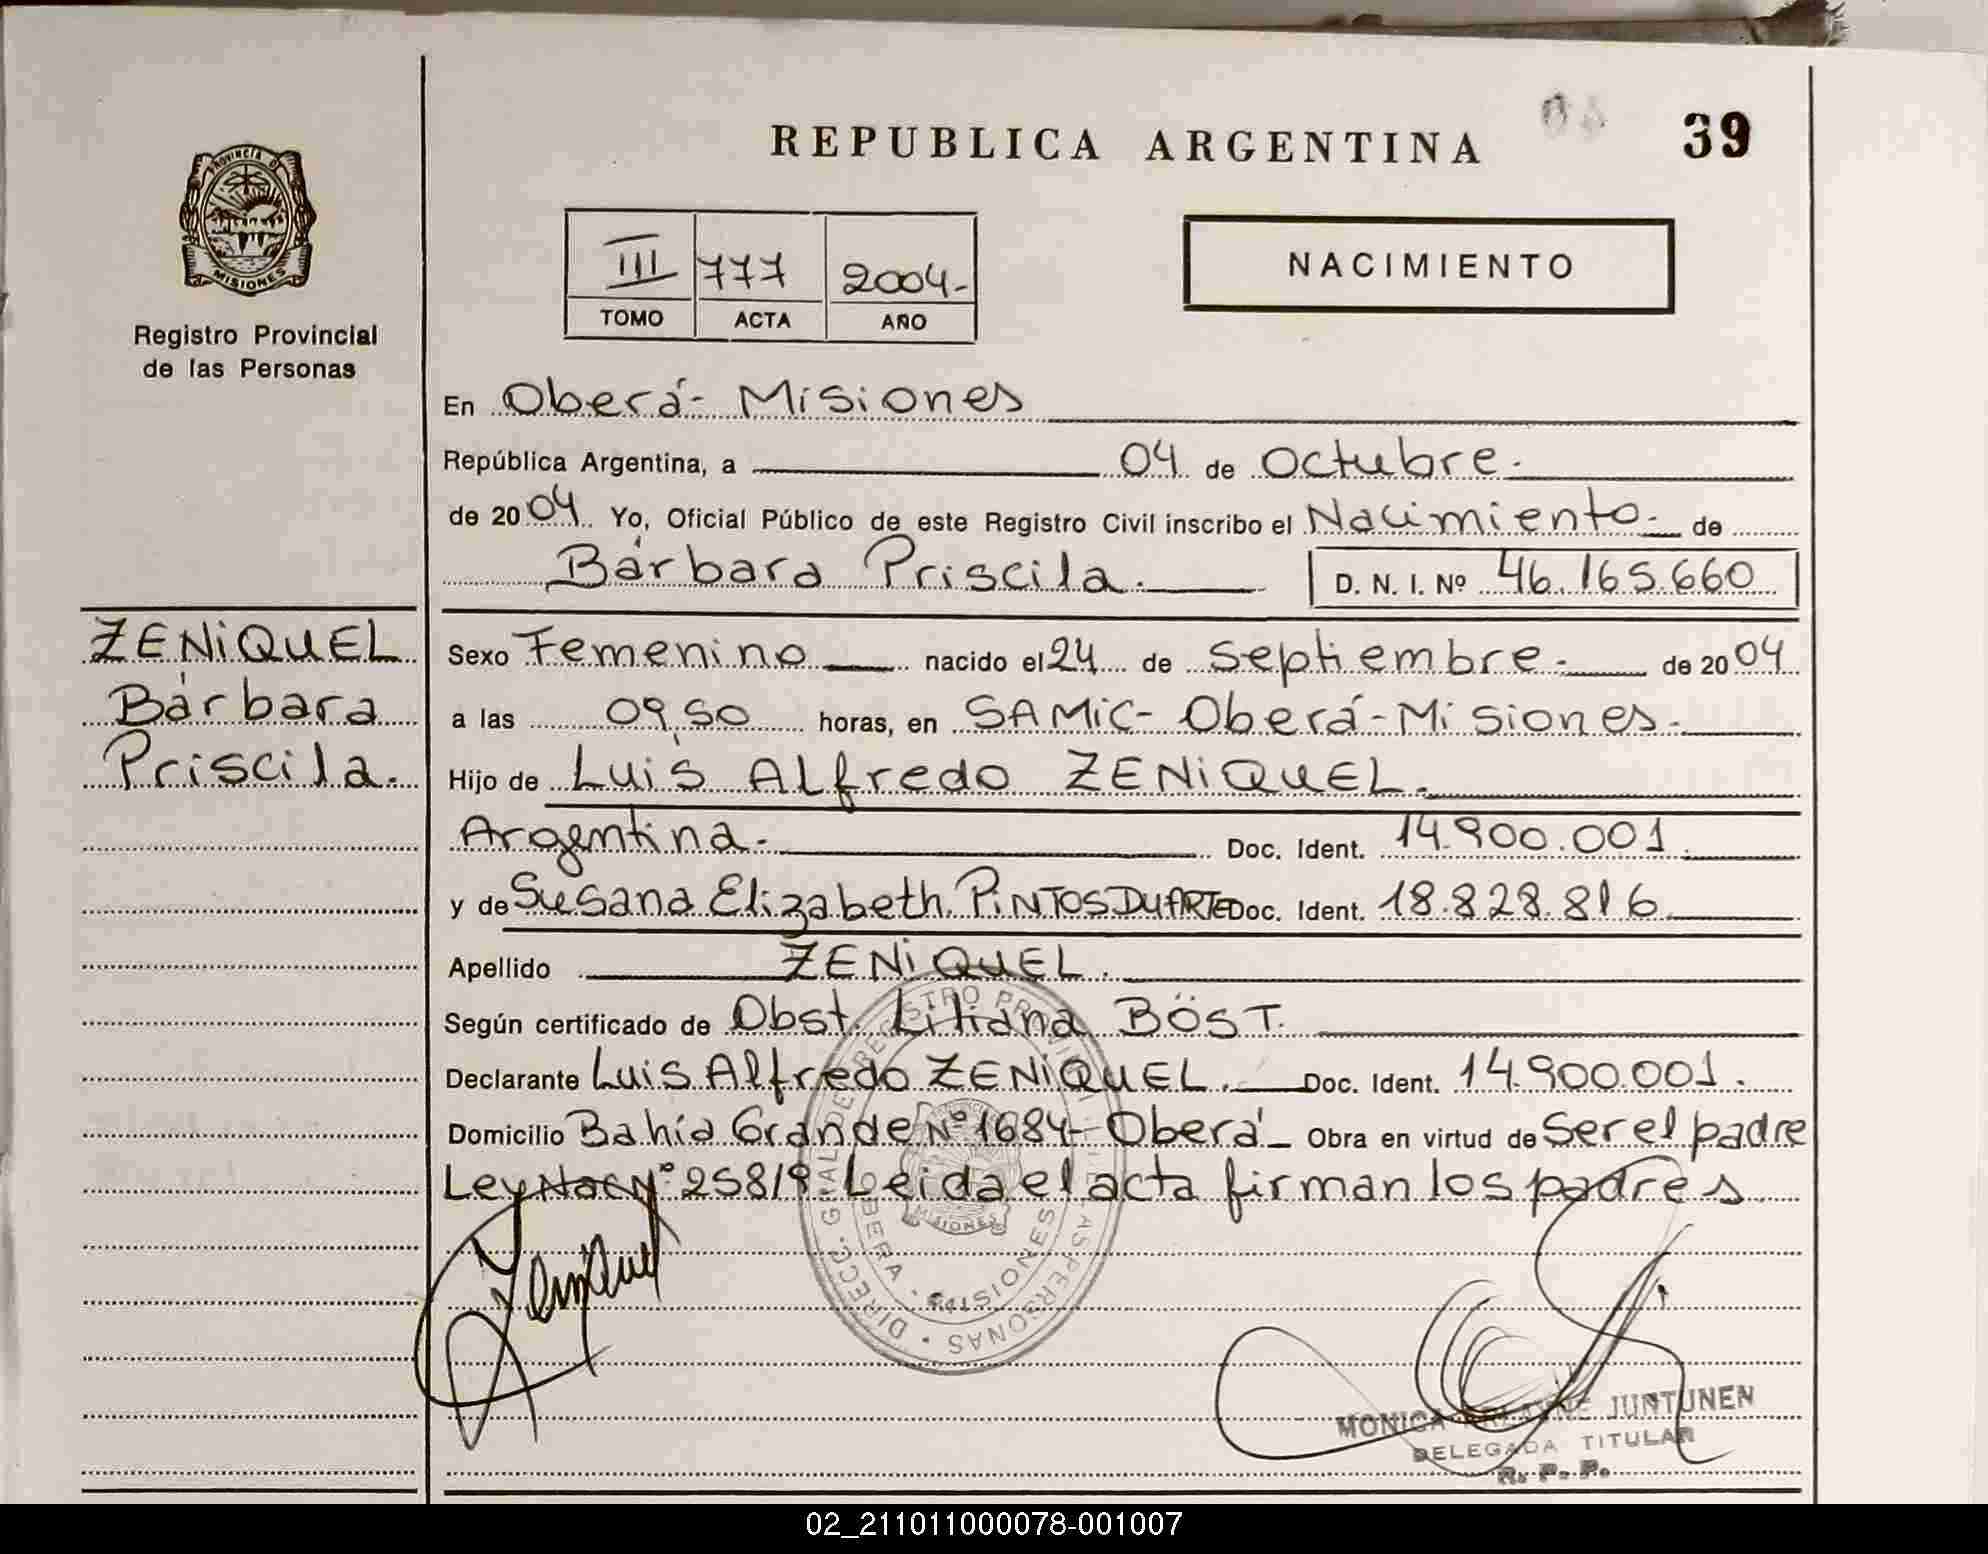 REPUBLICA ARGENTINA
39
PROVINCIA DE
MISIONES
Registro Provincial
de las Personas
III 777 2004-
TOMO ACTA AÑO
NACIMIENTO
En Oberá - Misiones
República Argentina, a 04 de Octubre.
de 2004 Yo, Oficial Público de este Registro Civil inscribo el Nacimiento. de
Bárbara Priscila. D. N. I. Nº 46.165.660
ZENiQUEL
Bárbara
Priscila.
Sexo Femenino nacido el 24 de Septiembre. de 2004
a las 09,50 horas, en SAMiC - Oberá - Misiones.
Hijo de Luis Alfredo ZENiQUEL.
Argentina. Doc. Ident. 14.900.001
y de Susana Elizabeth PiNTOS DUARTE Doc. Ident. 18.828.816
Apellido ZENiQUEL.
Según certificado de Obst. Liliana BÖST.
Declarante Luis Alfredo ZENiQUEL. Doc. Ident. 14.900.001.
Domicilio Bahía Grande Nº 1684 - Oberá - Obra en virtud de Ser el padre
Ley Nac Nº 25819 Leida el acta firman los padres
Zeniquel
OBERA · MISIONES
MISIONES
MONICA JUNTUNEN
DELEGADA TITULAR
R. P. P.
02_211011000078-001007